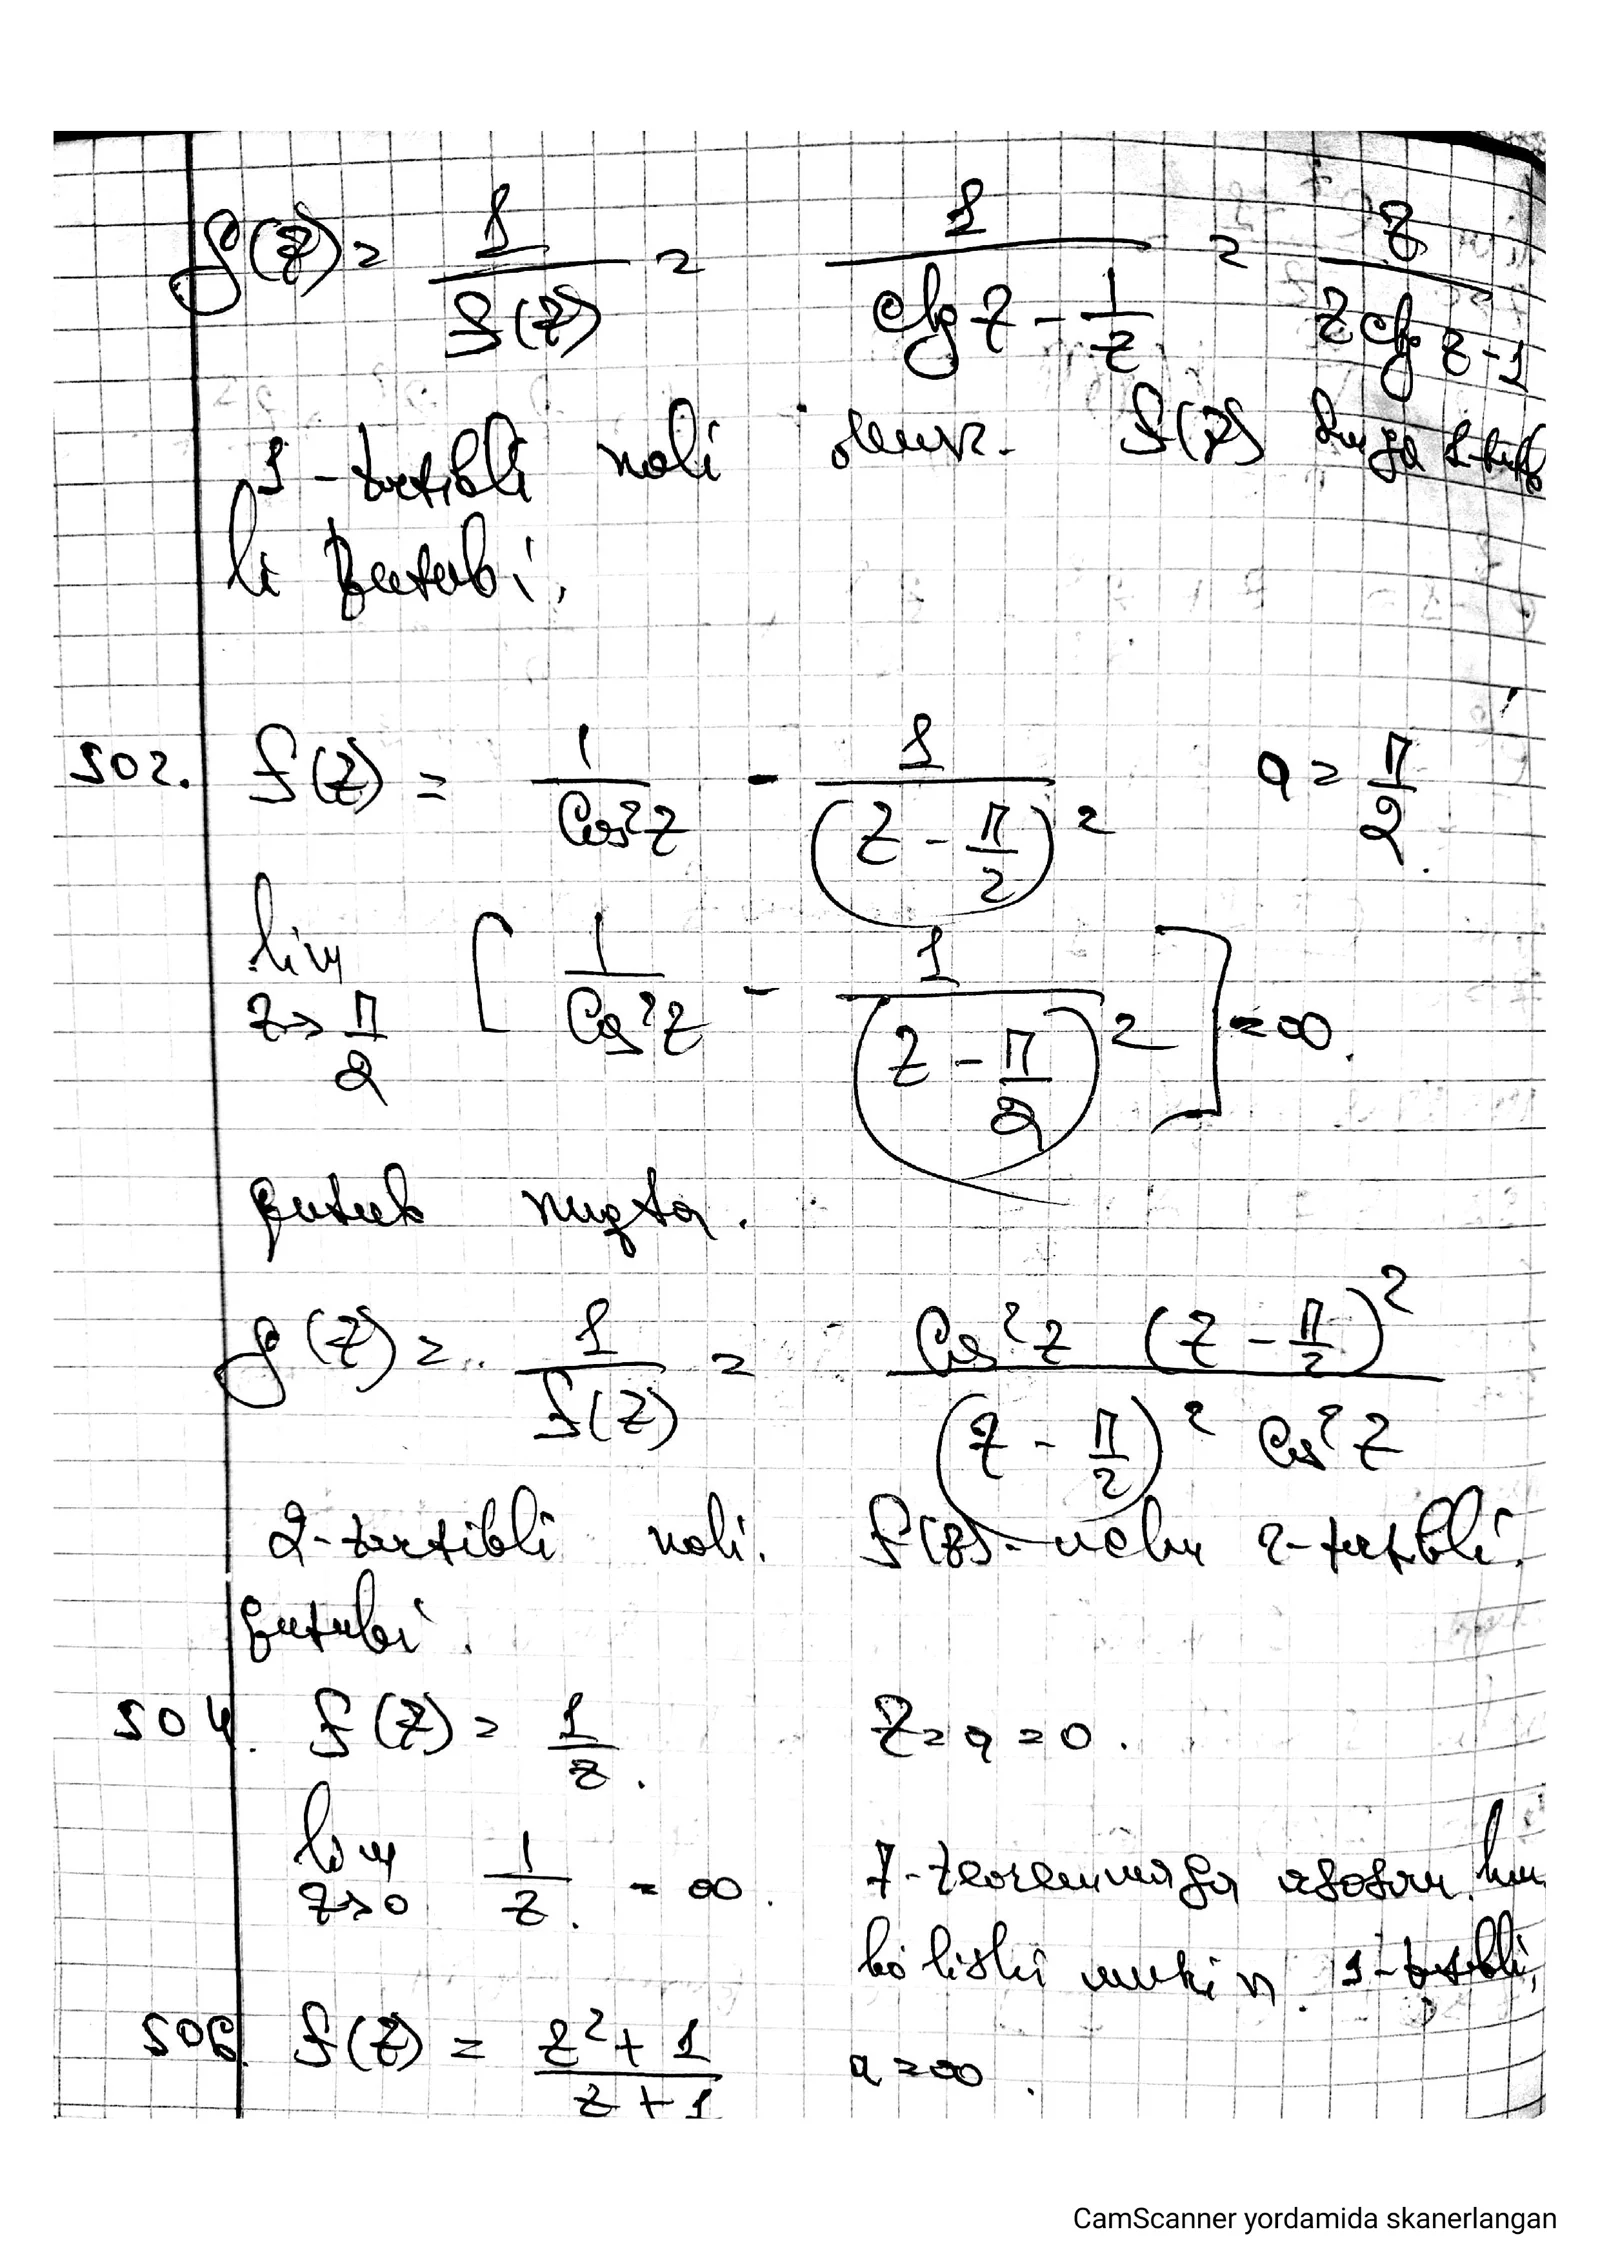 g(z) = 1/f(z) = 1/(ctg z - 1/z) = z/(z ctg z - 1)
1-tartibli noli f(z)
li qutubi.
502. f(z) = 1/Cos²z - 1/(z - π/2)² a = π/2.
lim z→π/2 [1/Cos²z - 1/(z - π/2)²] = ∞.
qutub nuqta.
g(z) = 1/f(z) = Cos²z (z - π/2)² / (z - π/2)² Cos²z
2-tartibli noli. f(z) 2-tartibli
qutubi.
504. f(z) = 1/z. z = a = 0.
lim z→0 1/z. = ∞. 7-teoremaga asosan
bo'lishi mukin. 1-tartibli,
506. f(z) = (z² + 1)/(z + 1) a = ∞.
CamScanner yordamida skanerlangan